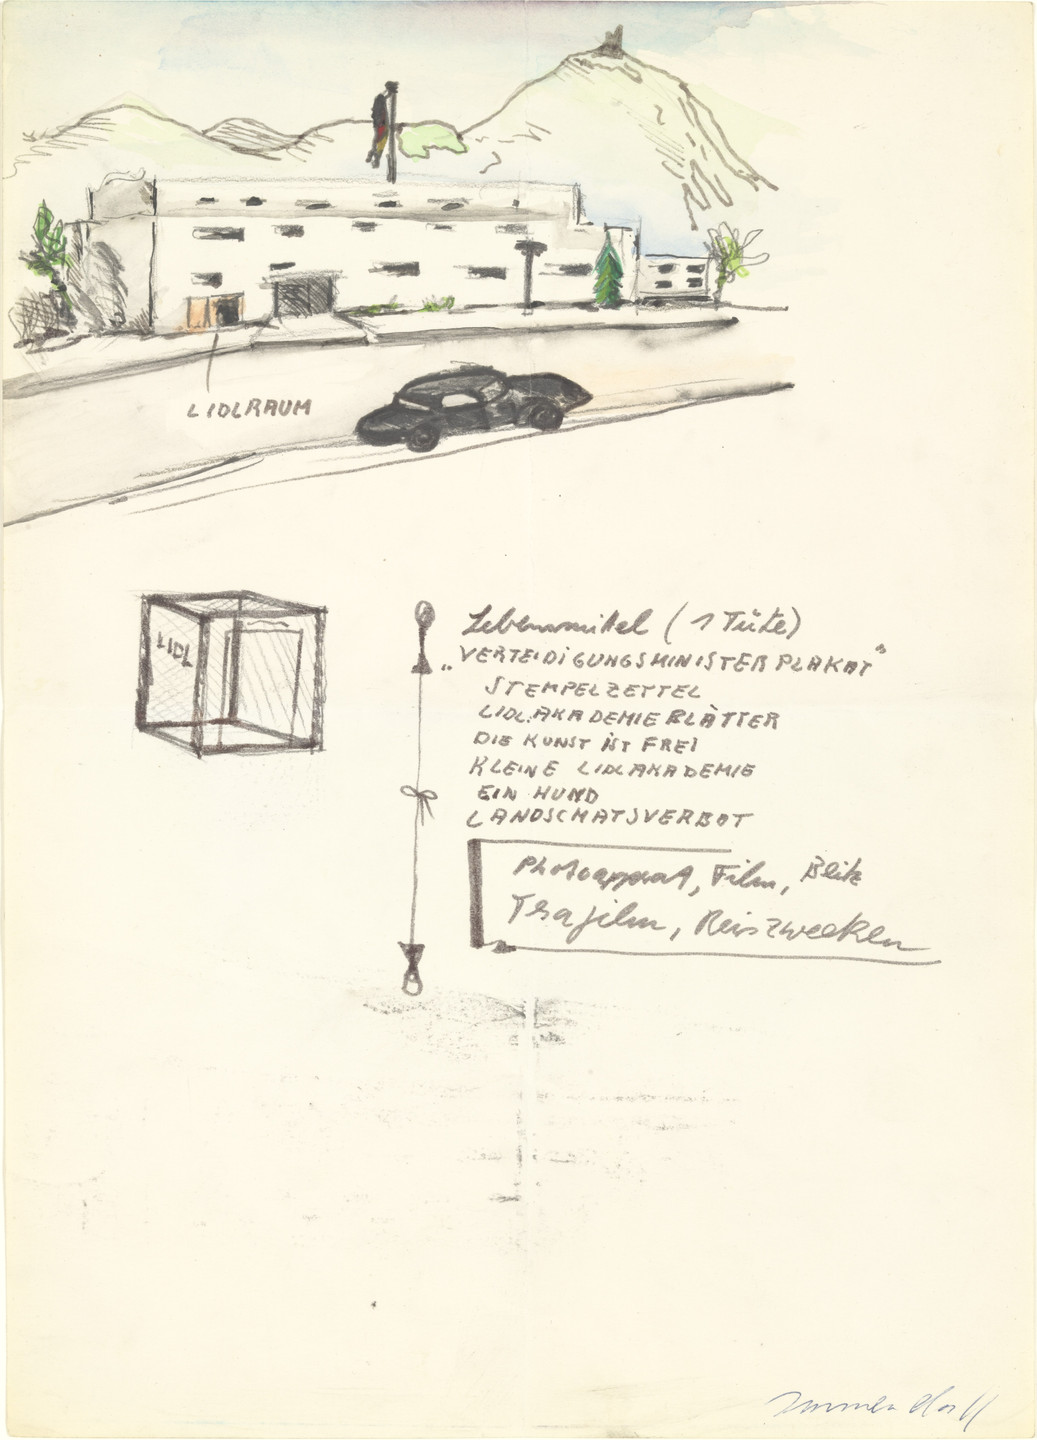 LIDLRAUM
LIDL
Lebensmittel (1 Tüte)
„VERTEIDIGUNGSMINISTER PLAKAT"
STEMPELZETTEL
LIDLAKADEMIE BLÄTTER
DIE KUNST IST FREI
KLEINE LIDLAKADEMIE
EIN HUND
LANDSCHATSVERBOT
Photoapparat, Film, Blitz
Trafilm, Reiszwecken
Immendorff